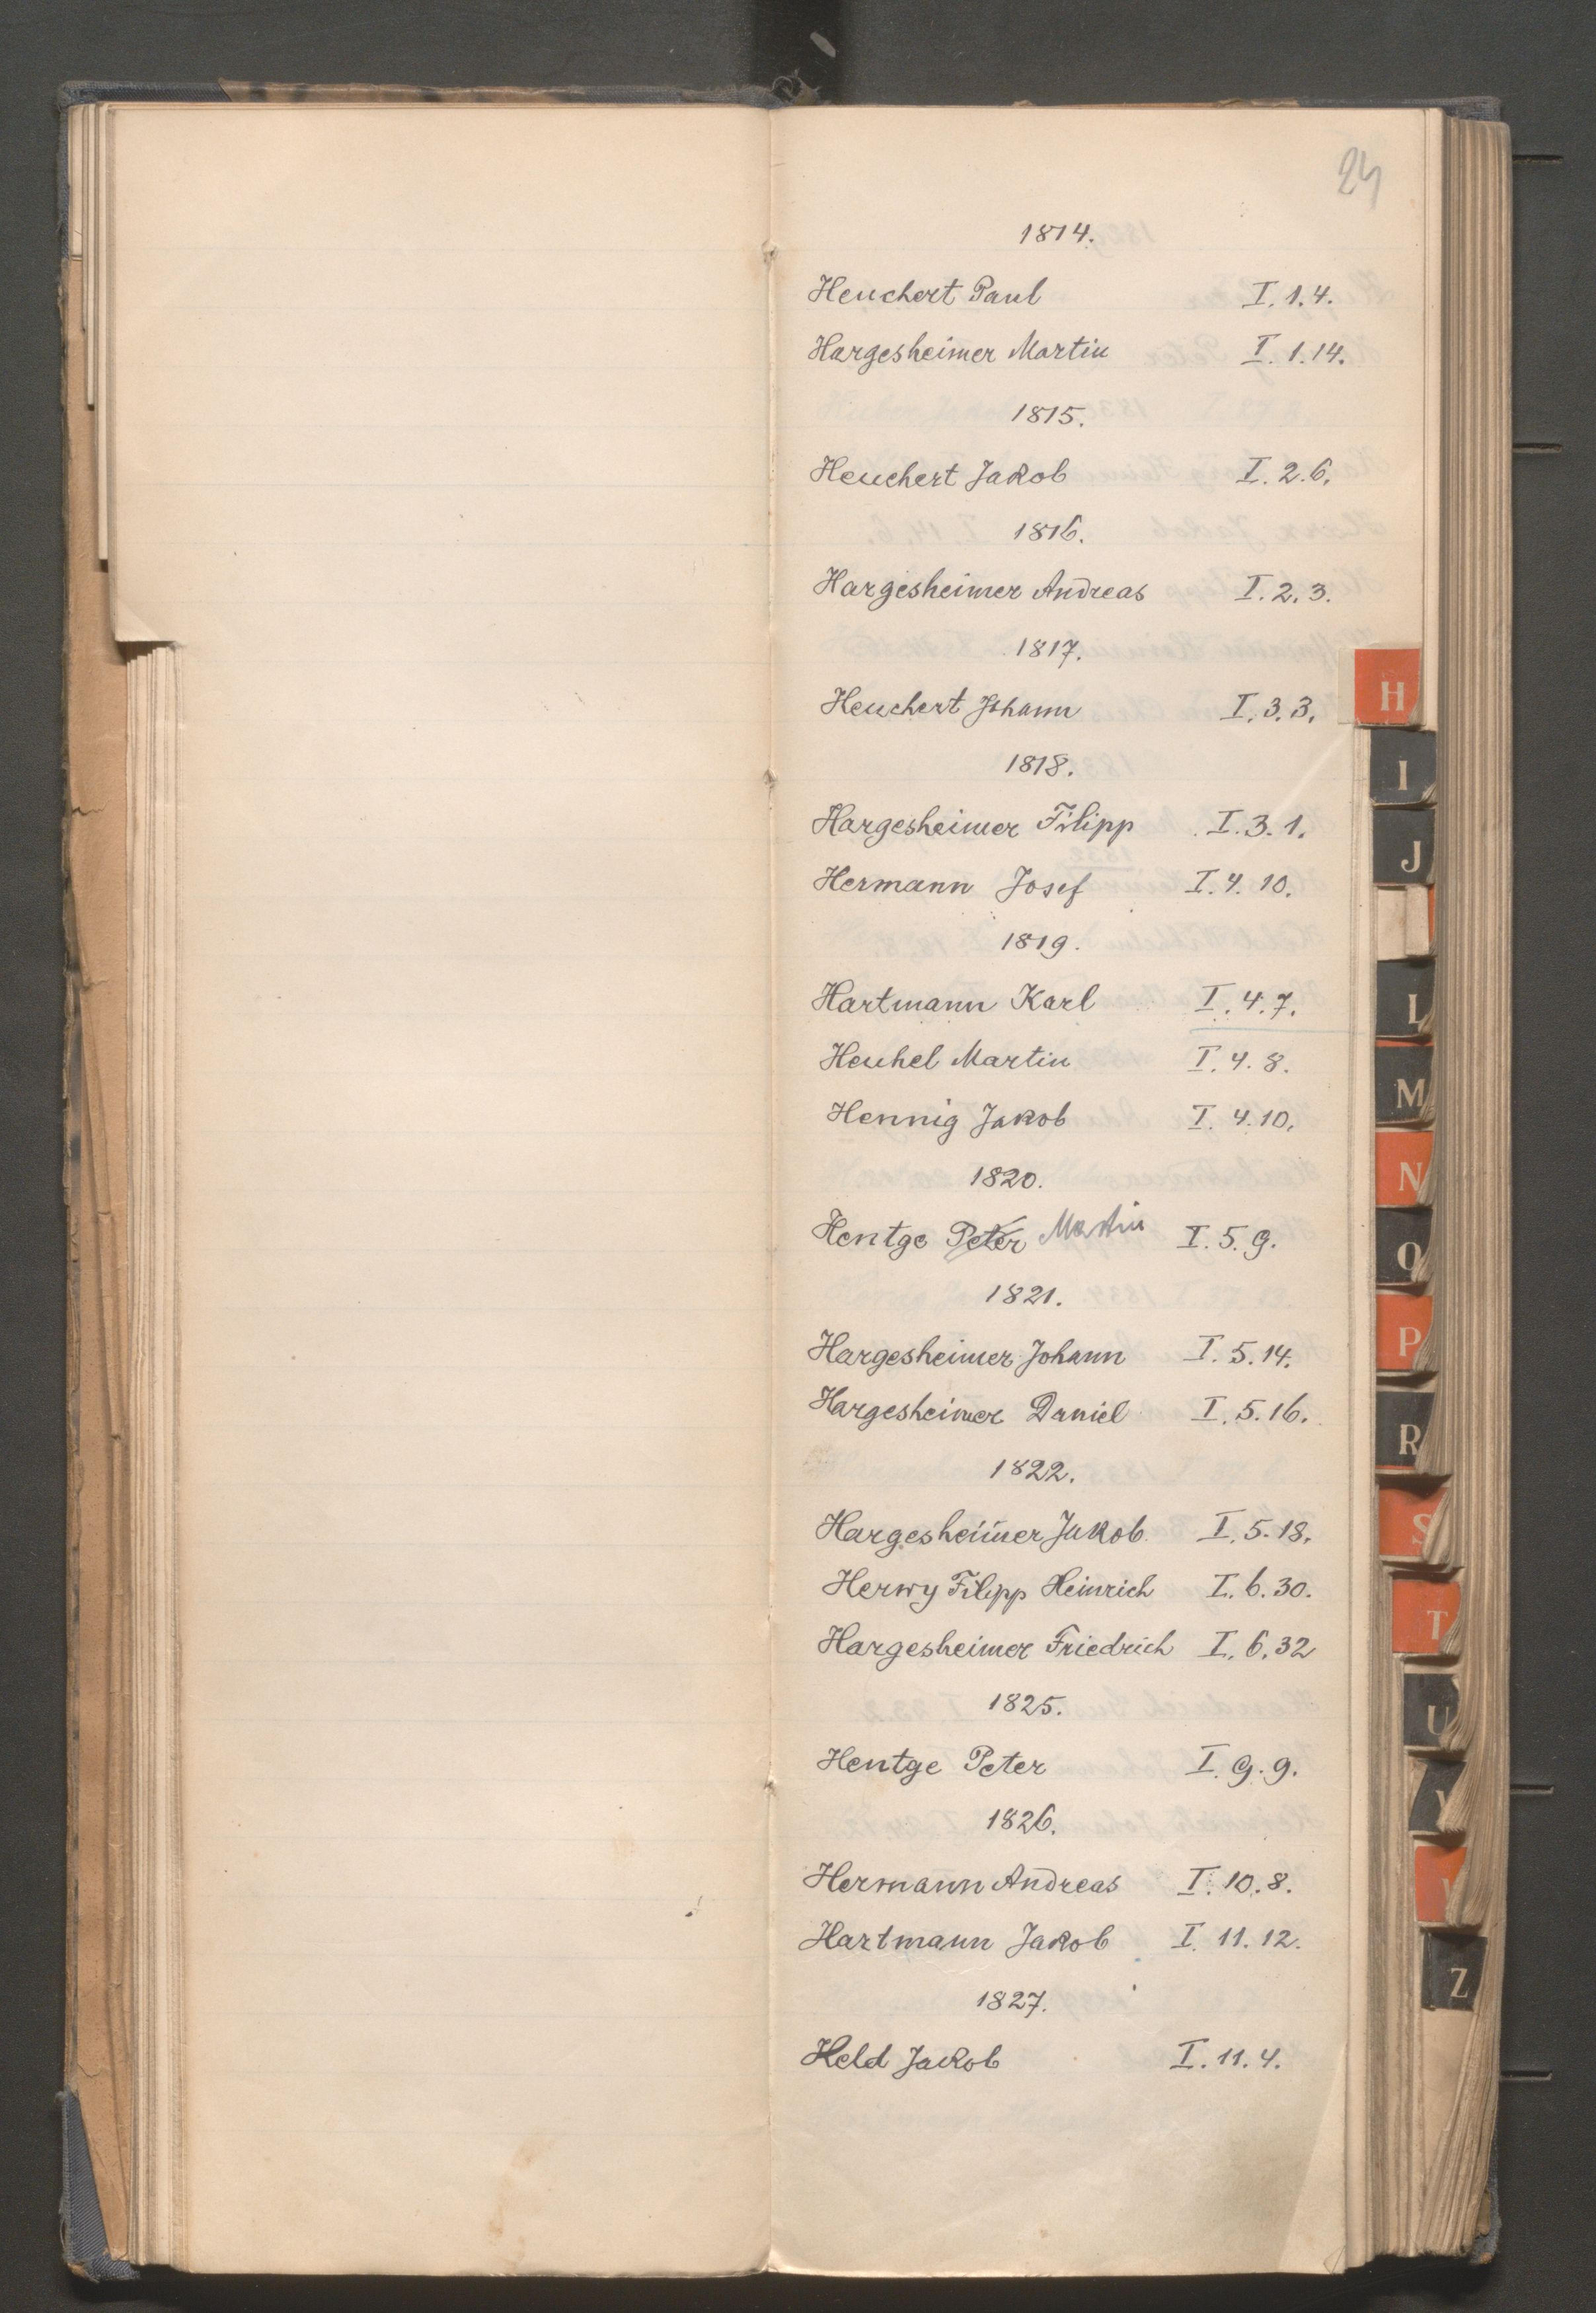 24
1814.
Heuchert Paul I. 1. 4.
Hargesheimer Martin I. 1. 14.
1815.
Heuchert Jakob I. 2. 6.
1816.
Hargesheimer Andreas I. 2. 3.
1817.
Heuchert Johann I. 3. 3.
1818.
Hargesheimer Filipp I. 3. 1.
Hermann Josef I. 4. 10.
1819.
Hartmann Karl I. 4. 7.
Heuhel Martin I. 4. 8.
Hennig Jakob I. 4. 10.
1820.
Hentge Peter Martin I. 5. 9.
1821.
Hargesheimer Johann I. 5. 14.
Hargesheimer Daniel I. 5. 16.
1822.
Hargesheimer Jakob I. 5. 18.
Herwy Filipp Heinrich I. 6. 30.
Hargesheimer Friedrich I. 6. 32
1825.
Hentge Peter I. 9. 9.
1826.
Hermann Andreas I. 10. 8.
Hartmann Jakob I. 11. 12.
1827.
Held Jakob I. 11. 4.
H
I
J
L
M
N
O
P
R
S
T
U
Z